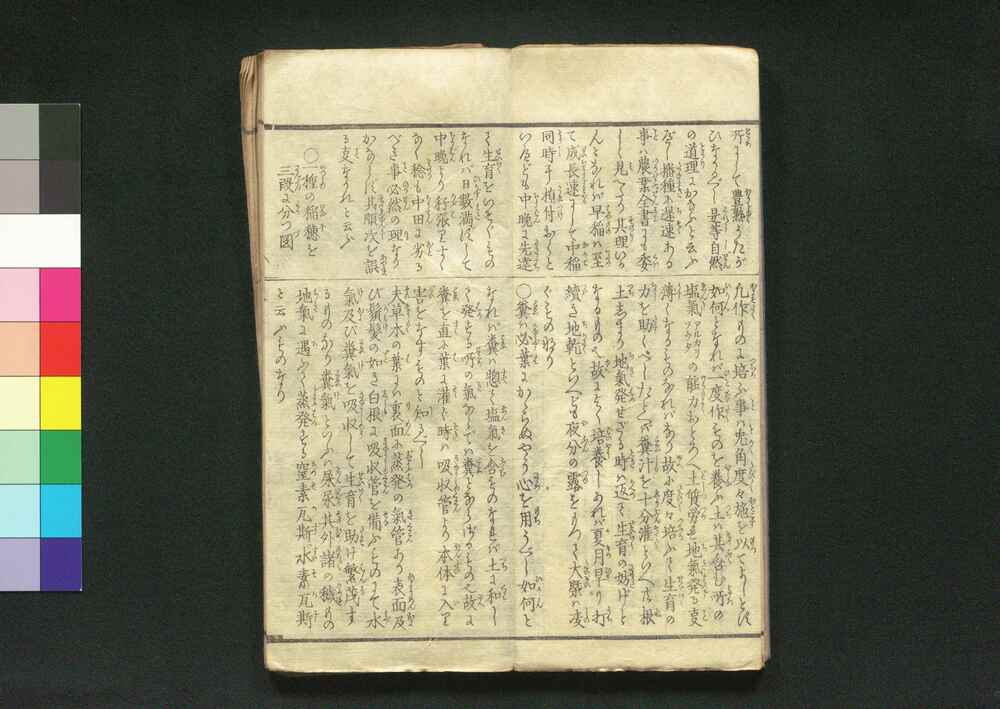 所にして豊熟うたが
ひなかるべし是等自然
の道理にかなふと云ふ
べし播種に遅速ある
事ハ農業全書にも委
しく見へたり其理いか
んとなれバ早稲ハ至
て成長速にして中稲
同時に植付おくと
いへども中晩に先達
て生育をいそぐもの
なれバ日数満ずして
中晩より行張りすく
なく稔も中田に劣る
べき事必然の理なり
かならず其順次を誤
る事なかれと云ふ
○一種の稲穂を
三段に分つ図
凡作りものに培ふ事ハ兎角度々施を以てよしとす
如何となれバ一度作ものを養へ土ハ其含む所の
塩氣アルカリソウダの能力おとろへ土質労れ地氣発る事
薄くなるものなれバなり故に度々培ふて生育の
力を助くべしたとへバ糞汁を十分灌といへ共根
土しまり地氣発せざる時ハ返て生育の妨げと
なるもの也故によく培養しあれバ夏月旱り打
続き地乾といへども夜分の露をもつて大槩ハ凌
ぐもの也
○糞ハ必葉にかゝらぬやう心を用ゆべし如何と
なれバ糞ハ惣て塩氣を含ものなれバ土に和し
て発する所の氣ならでハ糞とならざるもの也故に
糞を直に葉に灌ぐ時ハ吸収管より本体に入り
害をなすものと知るべし
夫草木の葉ハ裏面に蒸発の氣管あり表面及
び鬚髪の如き白根に吸収管を備ふものにて水
氣及び糞氣を吸収して生育を助け繁茂す
るものなり糞氣といふハ屎尿其外諸の穢もの
地氣に遇ふて蒸発する窒素瓦斯水素瓦斯
と云ふものなり